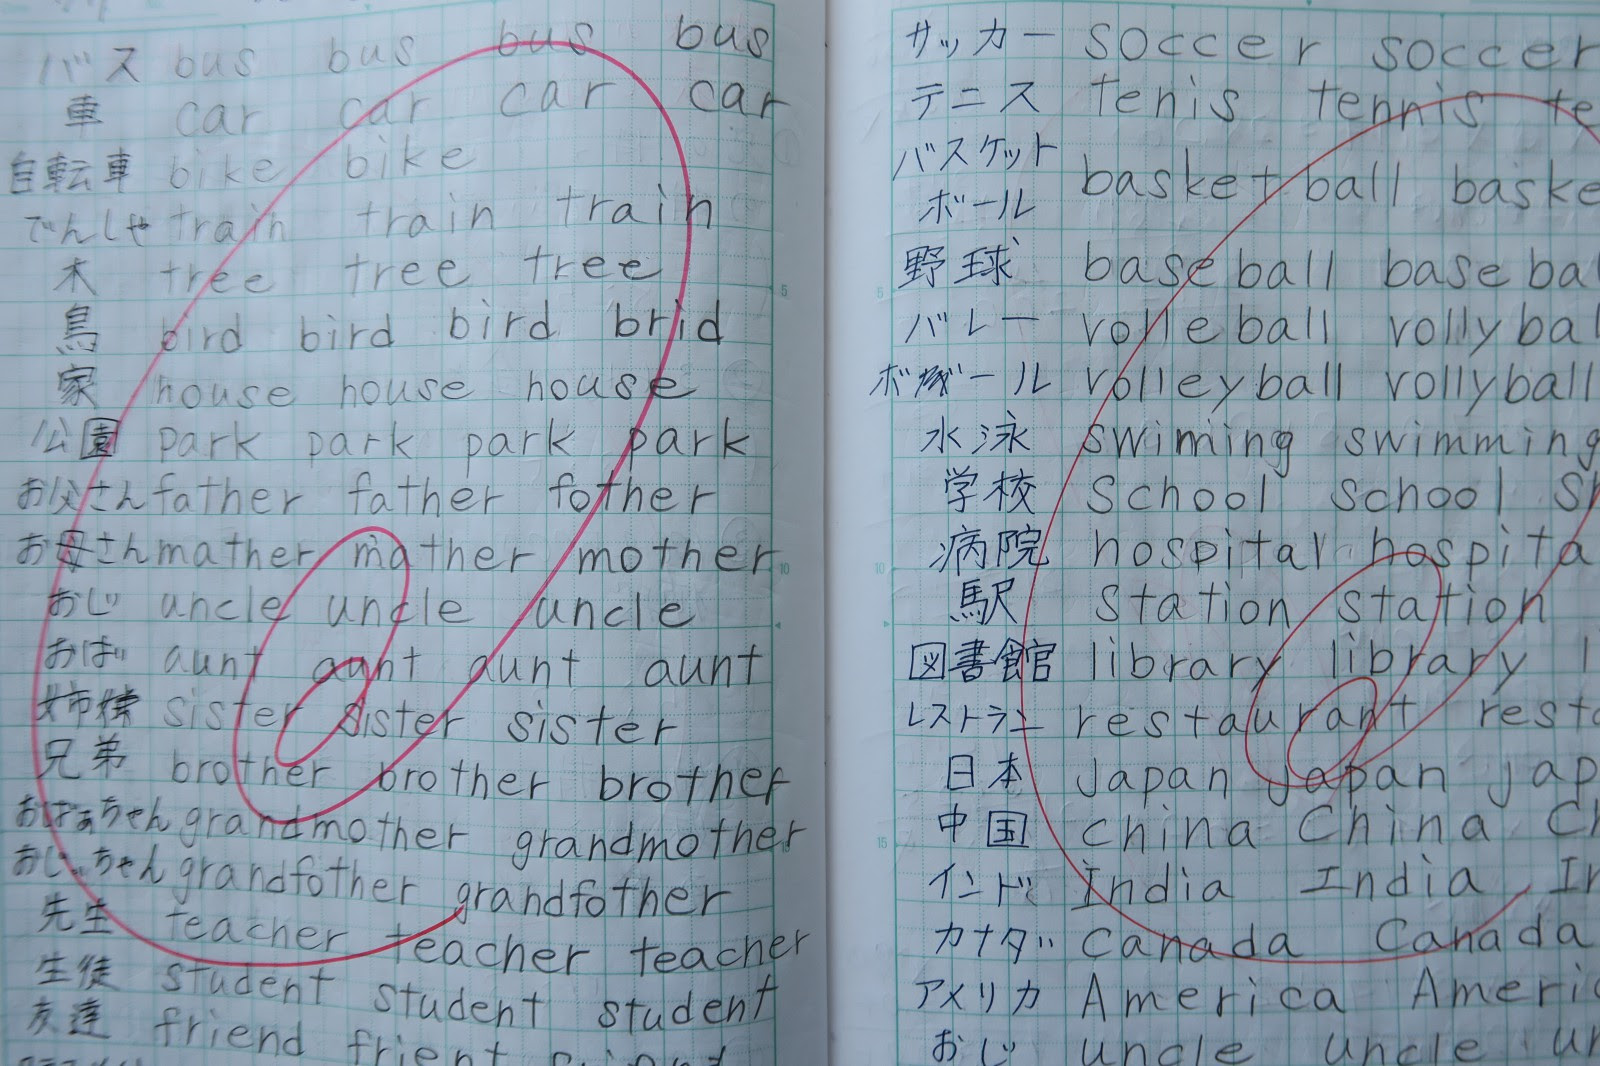 バス bus bus bus bus
車 car car car car
自転車 bike bike
でんしゃ train train train
木 tree tree tree
鳥 bird bird bird brid
家 house house house
公園 park park park park
お父さん father father fother
お母さん mather mather mother
おじ uncle uncle uncle
おば aunt aunt aunt aunt
姉妹 sister sister sister
兄弟 brother brother brother
おばあちゃん grandmother grandmother
おじいちゃん grandfother grandfother
先生 teacher teacher teacher
生徒 student student student
友達 friend frient
サッカー soccer soccer
テニス tenis tennis te
バスケット
ボール basketball baske
野球 baseball baseba
バレー volleball vollybal
ボール volleyball vollyball
水泳 swiming swimming
学校 school school
病院 hospital hospita
駅 station station
図書館 library library l
レストラン restaurant rest
日本 Japan Japan jap
中国 china China Ch
インド India India In
カナダ Canada Canada
アメリカ America Americ
おじ uncle uncle un